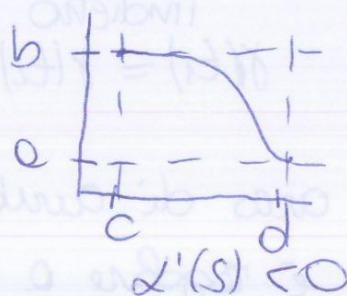 b
a
c d
α'(s) < 0